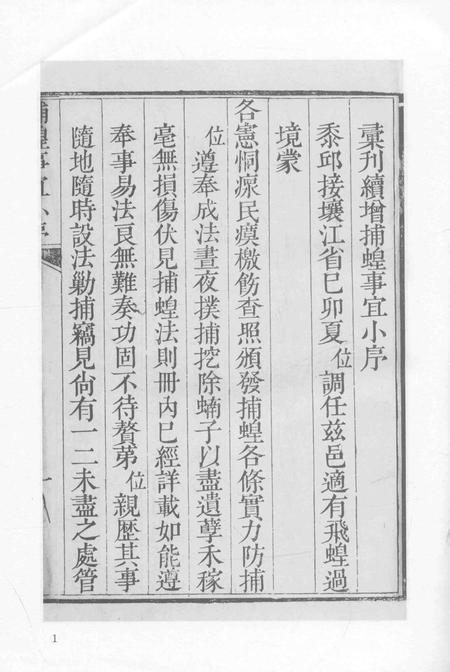 彙刊續增捕蝗事宜小序
黍邱接壤江省己卯夏位調任茲邑適有飛蝗過
境蒙
各憲恫瘝民瘼檄飭查照頒發捕蝗各條實力防捕
位遵奉成法晝夜撲捕挖除蝻子以盡遺孽禾稼
毫無損傷伏見捕蝗法則冊內已經詳載如能遵
奉事易法良無難奏功固不待贅苐位親歷其事
隨地隨時設法勦捕竊見尙有一二未盡之處管
捕蝗事宜小序
一
1